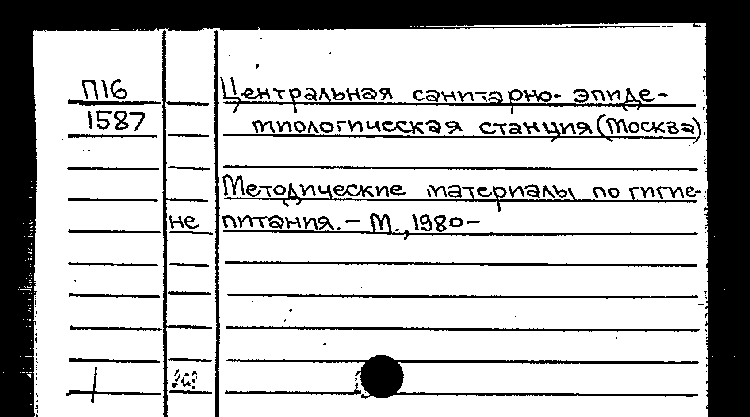 П16 Центральная санитарно-эпиде-
1587 миологическая станция (Москва)
Методические материалы по гигие-
не питания. – М., 1980–